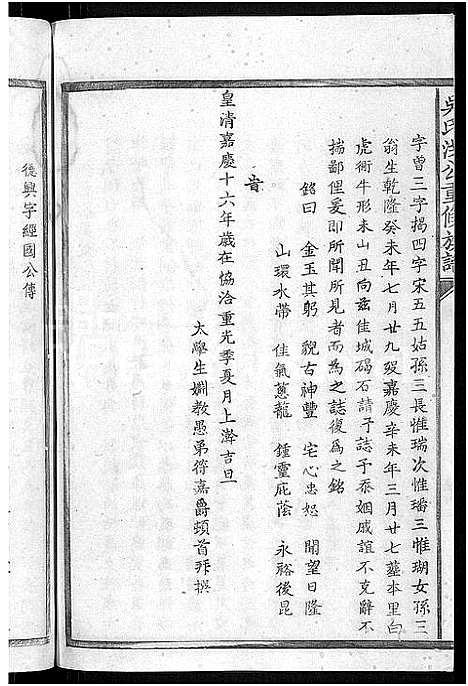 吳氏洪公重修族譜
字曾三字揭四字宋五五姑孫三長惟瑞次惟璠三惟瑚女孫三
翁生乾隆癸未年七月廿九歿嘉慶辛未年三月廿七塟本里白
虎衕牛形未山丑向茲佳城碣石請予誌予忝姻戚誼不克辭不
揣鄙俚爰即所聞所見者而為之誌復為之銘
銘曰 金玉其躬 貌古神豐 宅心忠恕 聞望日隆
山環水帶 佳氣蔥龍 鍾靈庇蔭 永裕後昆
皇清嘉慶十六年歲在協洽重光季夏月上澣吉旦
太學生姻教愚弟符嘉爵頓首拜撰
德興字經國公傳